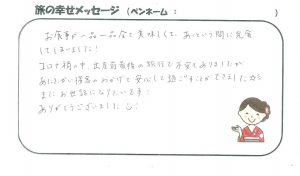 旅の幸せメッセージ（ペンネーム：　　　　　）
お食事が一品一品全て美味しくて、あっという間に完食
してしまいました！
コロナ禍の中、出産前最後の旅行で不安もありましたが
あたたかい接客のおかげで安心して過ごすことができました
またお世話になりたいです！
ありがとうございました